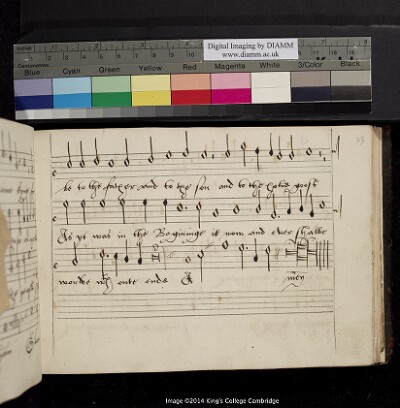 Digital Imaging by DIAMM
www.diamm.ac.uk
Inches
Centimetres
Blue Cyan Green Yellow Red Magenta White 3/Color Black
be to the father and to the son and to the holie goost
As yt was in the Beginninge is now and ever shalbe
worlde wth oute ende A men
Image ©2014 King's College Cambridge